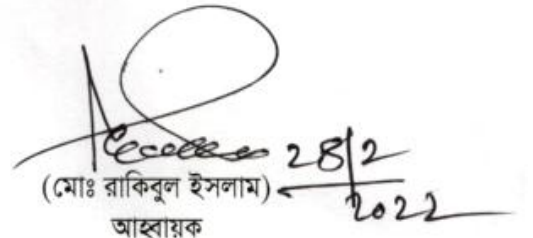 28/2
2022
(মোঃ রাকিবুল ইসলাম)
আহ্বায়ক